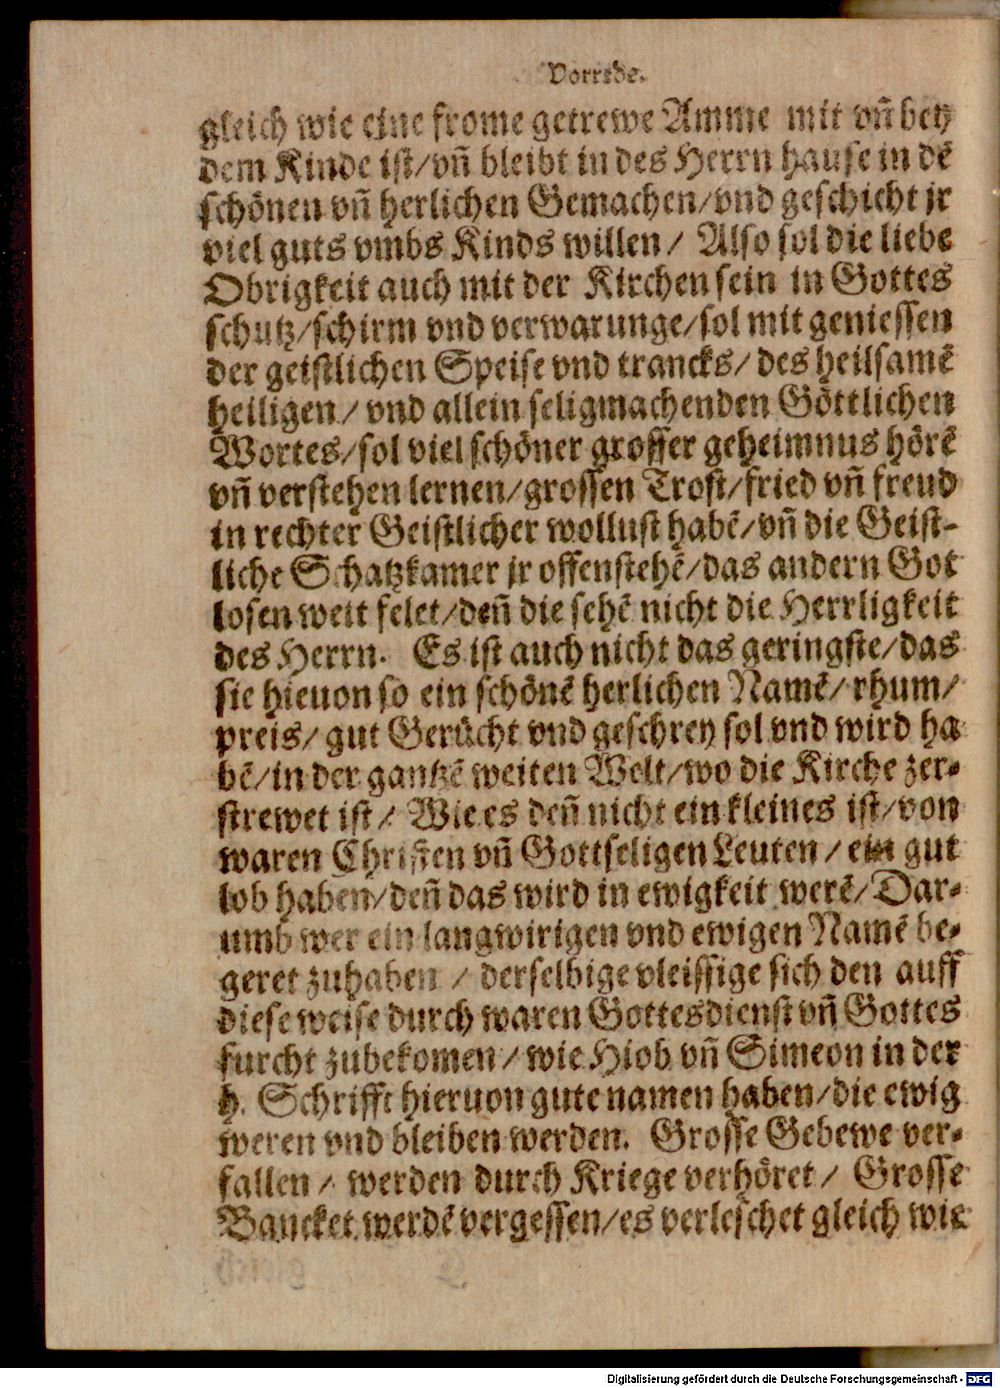 Vorrede.
gleich wie eine frome getrewe Amme mit vn̄ bey
dem Kinde ist/vn̄ bleibt in des Herrn hause in dē
schönen vn̄ herlichen Gemachen/vnd geschicht jr
viel guts vmbs Kinds willen/ Also sol die liebe
Obrigkeit auch mit der Kirchen sein in Gottes
schutz/schirm vnd verwarunge/sol mit geniessen
der geistlichen Speise vnd trancks/ des heilsamē
heiligen/ vnd allein seligmachenden Göttlichen
Wortes/sol viel schöner grosser geheimnus hörē
vn̄ verstehen lernen/grossen Trost/fried vn̄ freud
in rechter Geistlicher wollust habē/vn̄ die Geist-
liche Schatzkamer jr offenstehē/das andern Got
losen weit felet/den̄ die sehē nicht die Herrligkeit
des Herrn. Es ist auch nicht das geringste/das
sie hieuon so ein schönē herlichen Namē/rhum/
preis/ gut Gerücht vnd geschrey sol vnd wird ha
bē/in der gantzē weiten Welt/wo die Kirche zer-
strewet ist/ Wie es den̄ nicht ein kleines ist/von
waren Christen vn̄ Gottseligen Leuten/ ein gut
lob haben/den̄ das wird in ewigkeit werē/Dar-
umb wer ein langwirigen vnd ewigen Namē be-
geret zuhaben / derselbige vleissige sich den auff
diese weise durch waren Gottesdienst vn̄ Gottes
furcht zubekomen/ wie Hiob vn̄ Simeon in der
h. Schrifft hieruon gute namen haben/die ewig
weren vnd bleiben werden. Grosse Gebewe ver-
fallen/ werden durch Kriege verhöret/ Grosse
Bancket werdē vergessen/es verleschet gleich wie
Digitalisierung gefördert durch die Deutsche Forschungsgemeinschaft - DFG